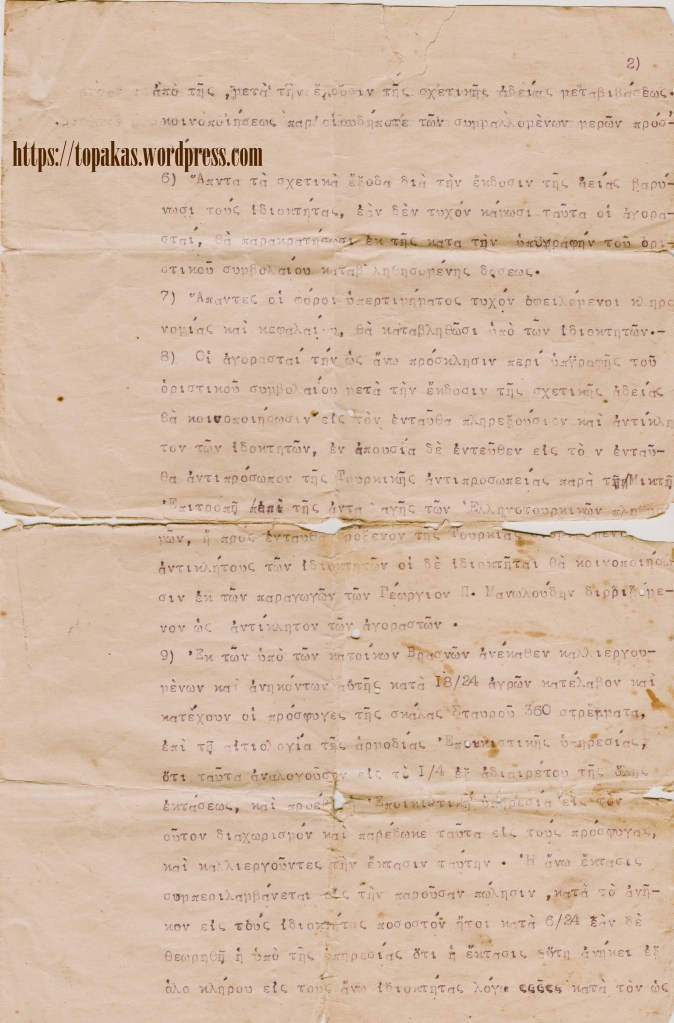 2)
ἀπὸ τῆς , μετὰ τὴν ἔκδοσιν τῆς σχετικῆς ἀδείας μεταβιβάσεως.
κοινοποιήσεως παρ' οἱωνδήποτε τῶν συμβαλλομένων μερῶν προσ-
https://topakas.wordpress.com
6) Ἅπντα τὰ σχετικὰ ἔξοδα διὰ τὴν ἔκδοσιν τῆς δείας βαρύ-
νωσι τοὺς ἰδιοκτήτας, ἐὰν δὲν τυχόν κάμωσι ταῦτα οἱ ἀγορα-
σταί, θὰ παρακρατήσωσι ἐκ τῆς κατα τὴν ὑπογραφήν τοῦ ὁρι-
στικοῦ συμβολαίου καταβληθησομένης δόσεως.
7) Ἅπαντες οἱ φόροι ὑπερτιμήματος τυχόν ὀφειλόμενοι κληρο
νομίας καὶ κεφαλαίου, θὰ καταβληθῶσι ὑπὸ τῶν ἰδιοκτητῶν.-
8) Οἱ ἀγορασταί τήν ὡς ἄνω πρόσκλησιν περί ὑπγραφῆς τοῦ
ὁριστικοῦ συμβολαίου μετὰ τὴν ἔκδοσιν τῆς σχετικῆς ἀδείας
θὰ κοινοποιήσωσιν εἰς τὸν ἐνταῦθα πληρεξούσιον καὶ ἀντίκλη
τον τῶν ἰδοκτητῶν, ἐν ἀπουσία δὲ ἐντεῦθεν εἰς τὸ ν ἐνταῦ-
θα ἀντιπρόσωπον τῆς Τουρκικῆς ἀντιπροσωπείας παρὰ τῆ Μικτῆ
Ἐπιτροπῆ ἐπὶ τῆς ἀνταλαγῆς τῶν Ἑλληνοτουρκικῶν
μῶν, ἤ προς ἐνταῦθα πρόξενον τῆς Τουρκίας
ἀντικλήτους τῶν ἰδιοκτητῶν οἱ δὲ ἰδιοκτῆται θὰ κοινοποιήσω
σιν ἐκ τῶν παραγωγῶν τῶν Γεώργιον Π. Μανωλούδην διοριζόμε-
νον ὡς ἀντίκλητον τῶν ἀγοραστῶν .
9) Ἐκ τῶν ὑπὸ τῶν κατοίκων Βρασνῶν ἀνέκαθεν καλλιεργου-
μένων καὶ ἀνηκόντων αὐτῆς κατὰ 18/24 ἀγρῶν κατέλαβον καὶ
κατέχουν οἱ πρόσφυγες τῆς σκάλας Σταυροῦ 360 στρέμματα,
ἐπὶ τῆ αἰτιολογία τῆς ἁρμοδίας Ἐποικιστικῆς ὑπηρεσίας,
ὅτι ταῦτα ἀναλογοῦσιν εἰς τὸ 1/4 ἐξ ἀδιαιρέτου τῆς ὅλης
ἐκτάσεως, καὶ προέβη ἡ Ἐποικιστικὴ ὑπηρεσία εἰς τὸν
οὕτον διαχωρισμόν καὶ παρέδωκε ταῦτα εἰς τοὺς πρόσφυγας,
καὶ καλλιεργοῦντες τὴν ἔκτασιν ταύτην . Ἡ ἄνω ἔκτασις
συμπεριλαμβάνεται εἰς τὴν παροῦσαν πώλησιν ,κατὰ τὸ ἀνῆ-
κον εἰς τοὺς ἰδιοκτήτας ποσοστόν ἤτοι κατὰ 6/24 ἐὰν δὲ
θεωρηθῆ ἡ ὑπὸ τῆς ὑπηρεσίας ὅτι ἡ ἔκτασις αὕτη ἀνήκει ἐξ
ὁλο κλήρου εἰς τοὺς ἄνω ἰδιοκτήτας λόγω κατὰ τὸν ὡς